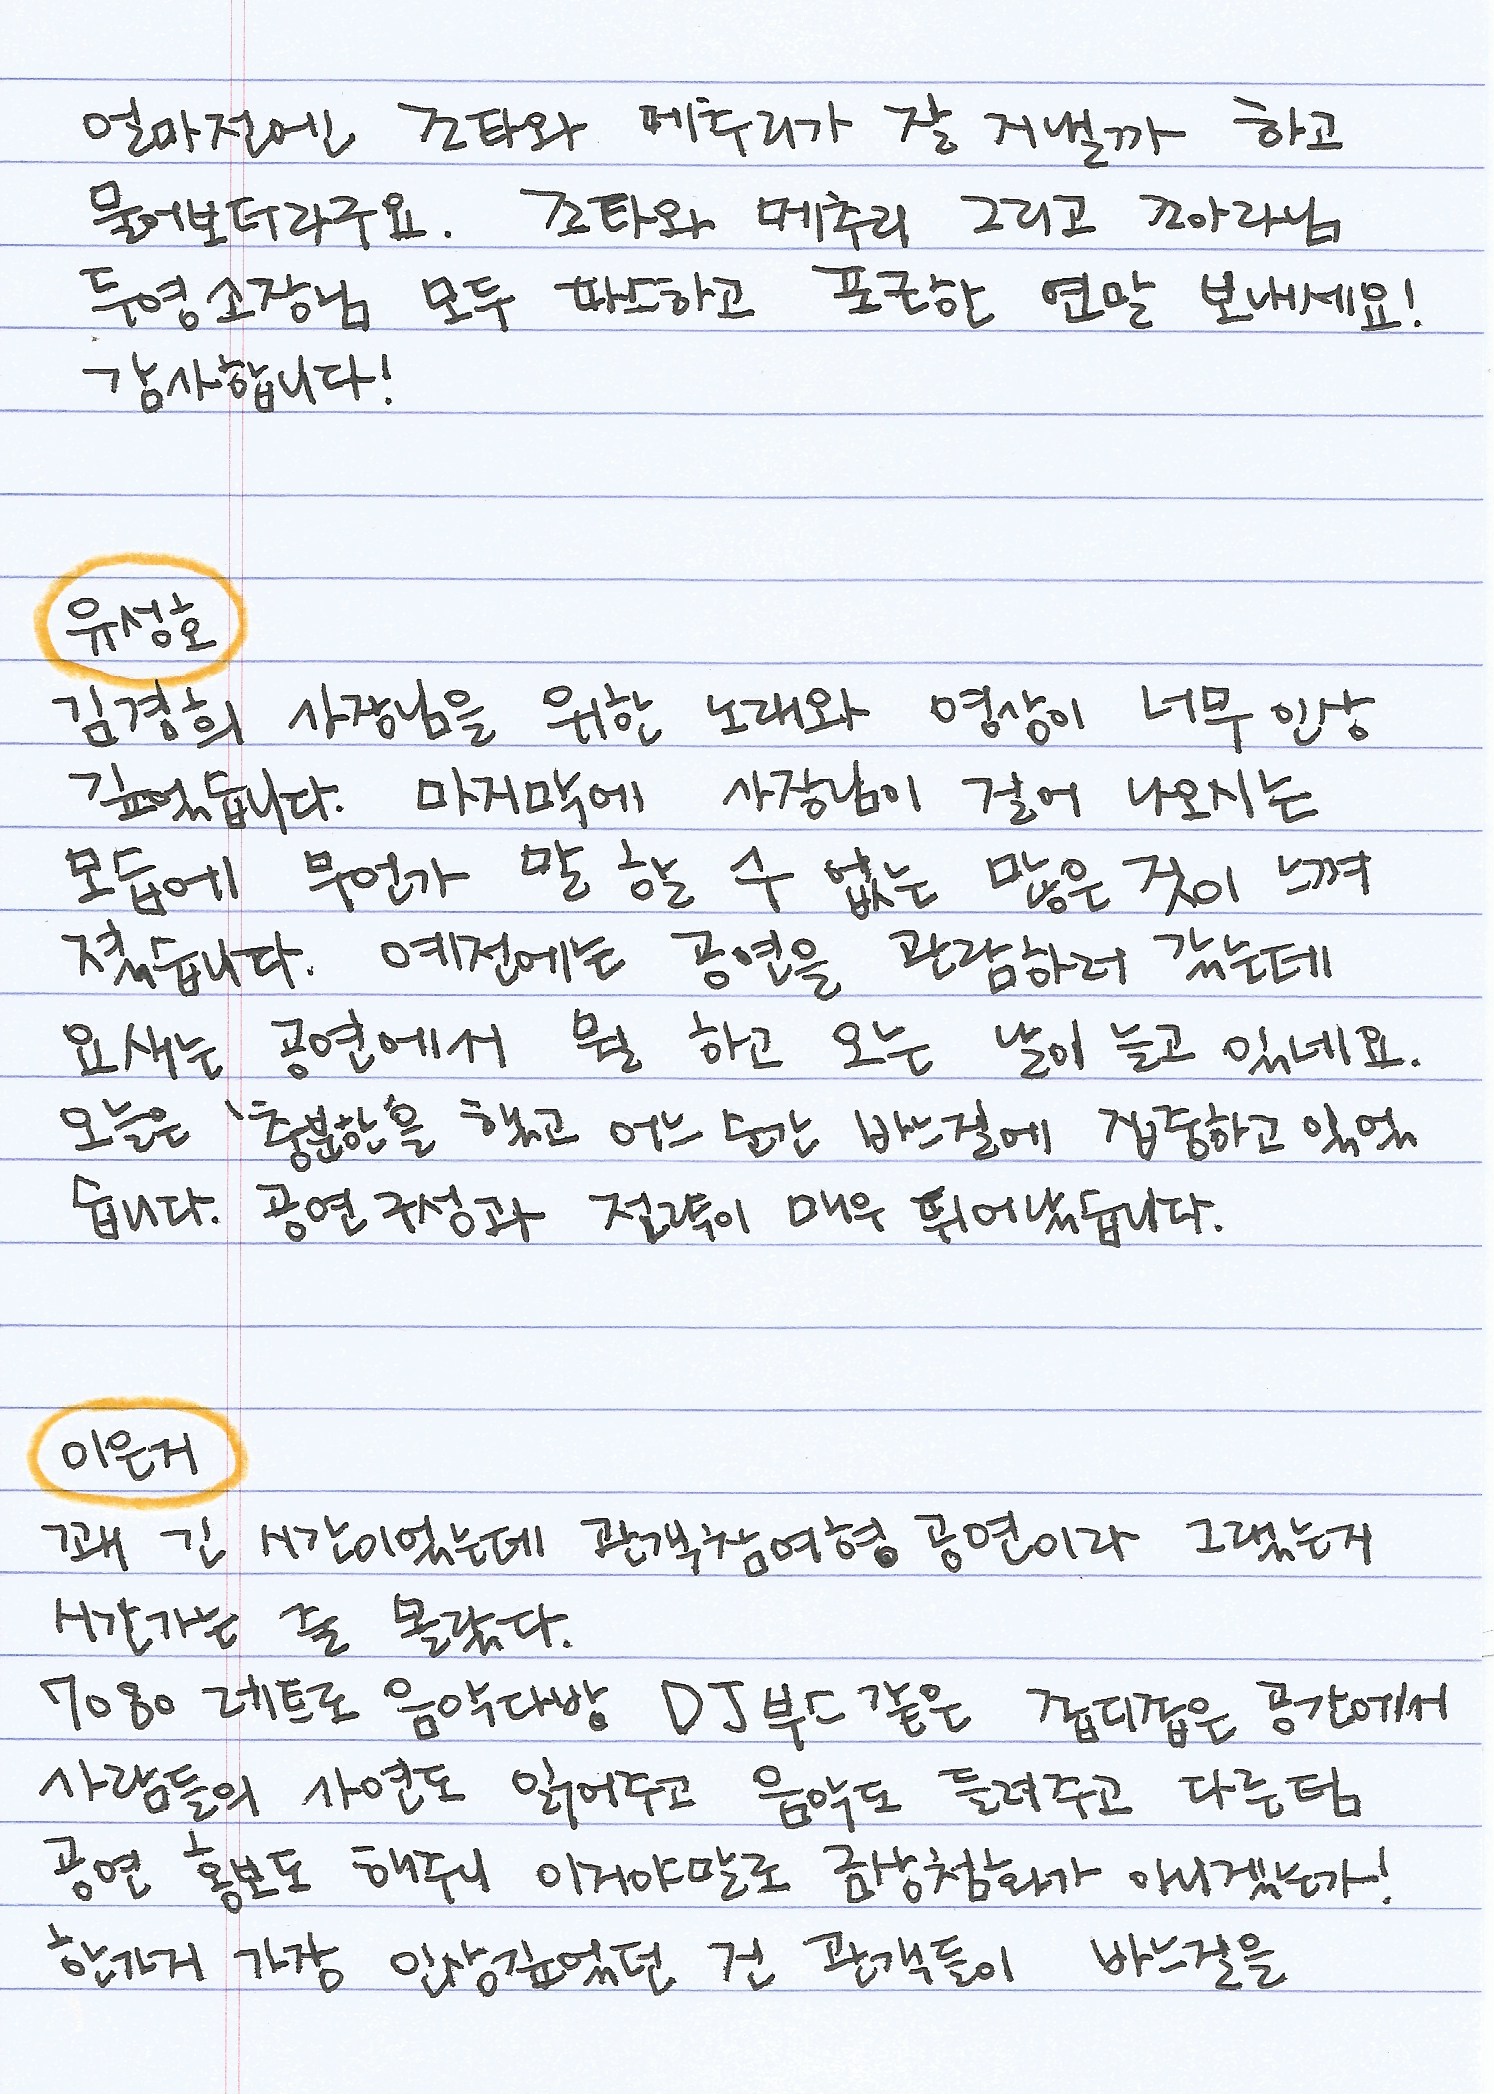 얼마전에는 조타와 메추리가 잘 지낼까 하고
물어보더라구요. 조타와 메추리 그리고 조아라님
두영소장님 모두 따스하고 포근한 연말 보내세요!
감사합니다!
유성호
김경희 사장님을 위한 노래와 영상이 너무 인상
깊었습니다. 마지막에 사장님이 걸어 나오시는
모습에 무언가 말 할 수 없는 많은 것이 느껴
졌습니다. 예전에는 공연을 관람하러 갔는데
요새는 공연에서 뭘 하고 오는 날이 늘고 있네요.
오늘은 '충분한'을 했고 어느 순간 바느질에 집중하고 있었
습니다. 공연 구성과 전략이 매우 뛰어났습니다.
이은지
꽤 긴 시간이었는데 관객참여형 공연이라 그랬는지
시간가는 줄 몰랐다.
7080 레트로 음악다방 DJ부스 같은 좁디좁은 공간에서
사람들의 사연도 읽어주고 음악도 들려주고 다른팀
공연 홍보도 해주니 이거야말로 금상첨화가 아니겠는가!
한가지 가장 인상깊었던 건 관객들이 바느질을